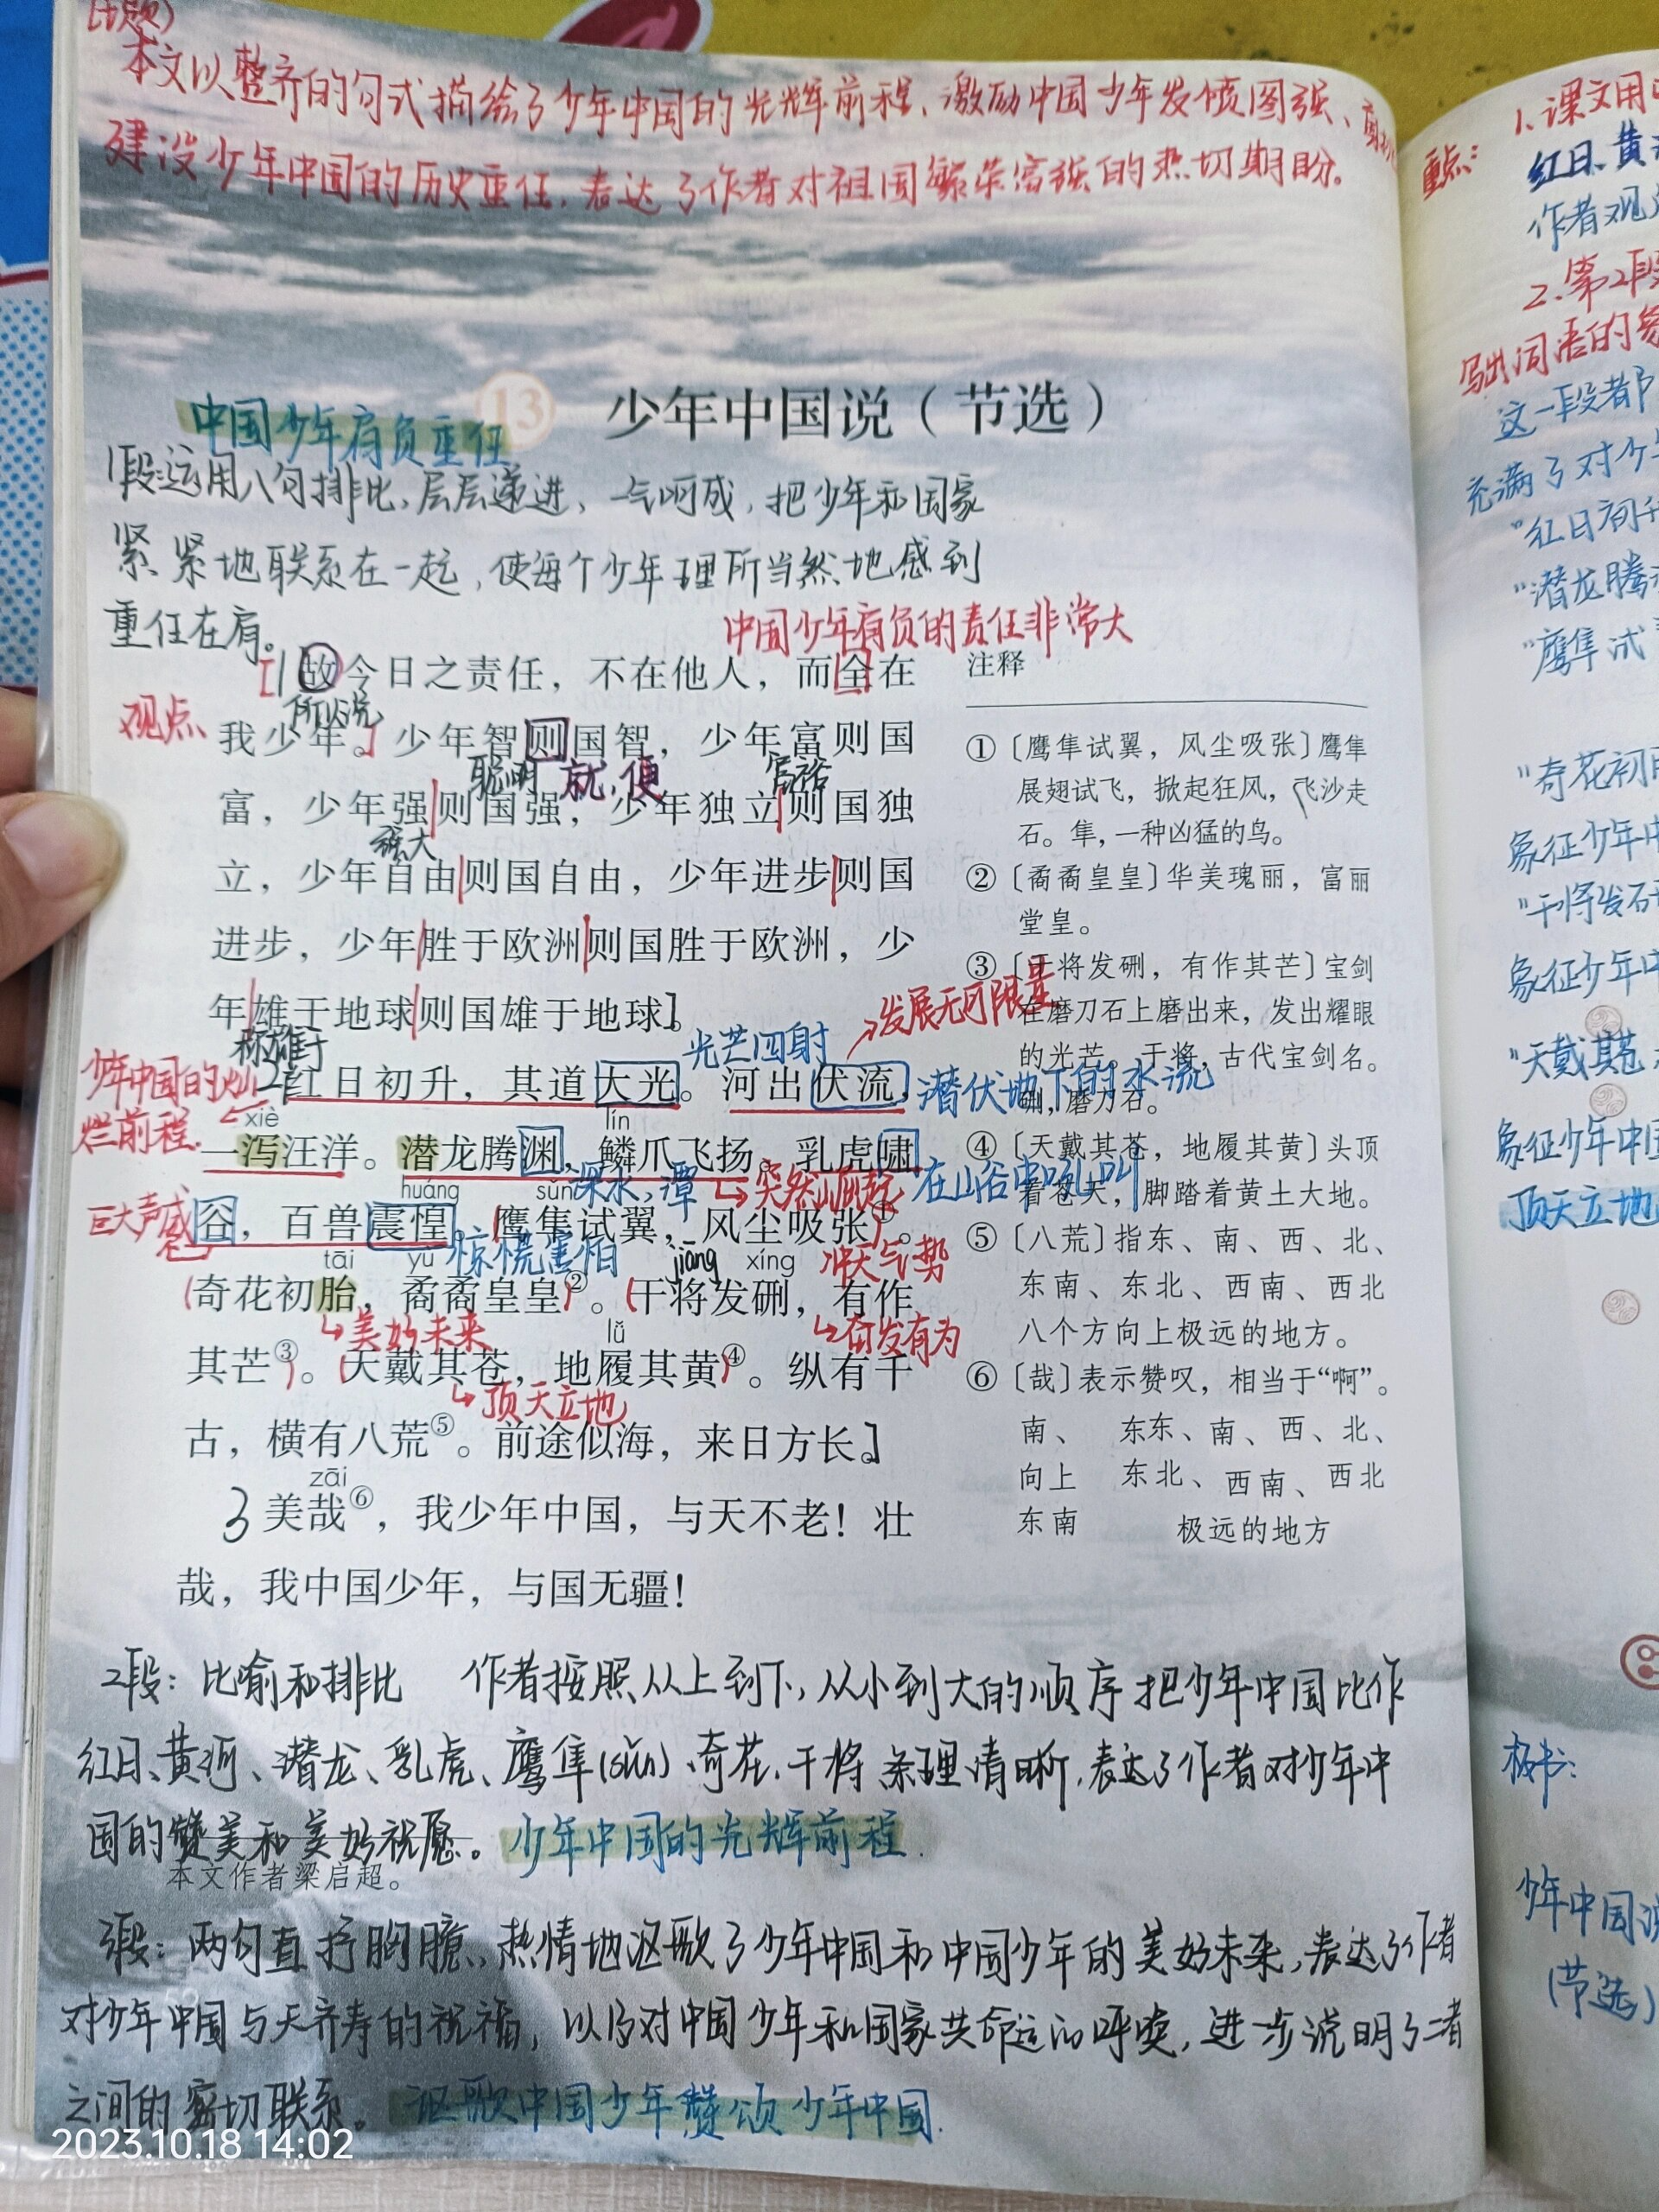 (主题)
本文以整齐的句式描绘了少年中国的光辉前程、激励中国少年发愤图强、
建设少年中国的历史重任,表达了作者对祖国繁荣富强的热切期盼。
13 少年中国说(节选)
中国少年肩负重任
1段:运用八句排比,层层递进,一气呵成,把少年和国家
紧紧地联系在一起,使每个少年理所当然地感到
重任在肩。
中国少年肩负的责任非常大
观点
1故今日之责任,不在他人,而全在
所以说
我少年。少年智则国智,少年富则国
聪明 就,便 富裕
富,少年强则国强,少年独立则国独
强大
立,少年自由则国自由,少年进步则国
进步,少年胜于欧洲则国胜于欧洲,少
年雄于地球则国雄于地球。
称雄于
光芒四射
发展无可限量
少年中国的灿
烂前程.
2红日初升,其道大光。河出伏流,
潜伏地下的水流
xiè lín
一泻汪洋。潜龙腾渊,鳞爪飞扬。乳虎啸
深水,潭 突然崛起 在山谷中吼叫
巨大声威
huáng sǔn
谷,百兽震惶。鹰隼试翼,风尘吸张①。
惊慌害怕 冲天气势
tāi yù jiāng xíng
奇花初胎,矞矞皇皇②。干将发硎,有作
美好未来 奋发有为
lǚ
其芒③。天戴其苍,地履其黄④。纵有千
顶天立地
古,横有八荒⑤。前途似海,来日方长。
zāi
3美哉⑥,我少年中国,与天不老!壮
哉,我中国少年,与国无疆!
注释
①〔鹰隼试翼,风尘吸张〕鹰隼
展翅试飞,掀起狂风,飞沙走
石。隼,一种凶猛的鸟。
②〔矞矞皇皇〕华美瑰丽,富丽
堂皇。
③〔干将发硎,有作其芒〕宝剑
在磨刀石上磨出来,发出耀眼
的光芒。干将,古代宝剑名。
硎,磨刀石。
④〔天戴其苍,地履其黄〕头顶
着苍天,脚踏着黄土大地。
⑤〔八荒〕指东、南、西、北、
东南、东北、西南、西北
八个方向上极远的地方。
⑥〔哉〕表示赞叹,相当于“啊”。
南、 东东、南、西、北、
向上 东北、西南、西北
东南 极远的地方
2段:比喻和排比 作者按照从上到下,从小到大的顺序把少年中国比作
红日、黄河、潜龙、乳虎、鹰隼(sǔn)、奇花、干将,条理清晰,表达了作者对少年中
国的赞美和美好祝愿。少年中国的光辉前程.
本文作者梁启超。
3段:两句直抒胸臆,热情地讴歌了少年中国和中国少年的美好未来,表达了作者
对少年中国与天齐寿的祝福,以及对中国少年和国家共命运的呼唤,进一步说明了二者
之间的密切联系。讴歌中国少年赞颂少年中国.
2023.10.18 14:02
重点:
1.课文用
红日、黄
作者观
2.第2段
写出词语的象
这一段都
充满了对少
“红日初升
“潜龙腾
“鹰隼试
“奇花初
象征少年中
“干将发
象征少年中
“天戴其苍
象征少年中国
顶天立地
板书:
少年中国说
(节选)